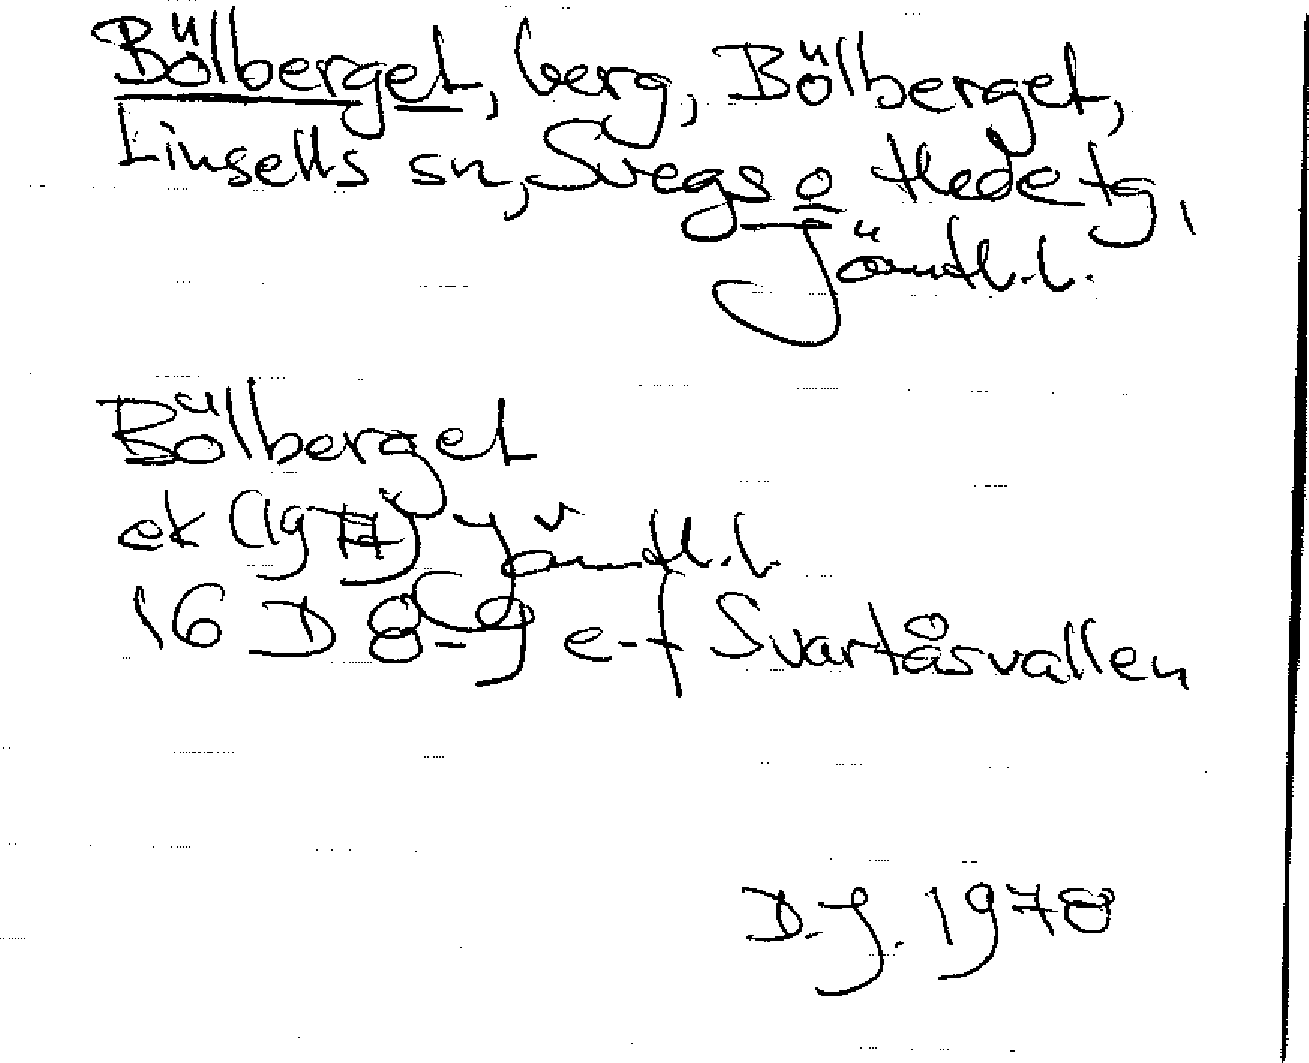 Bölberget, berg, Bölberget,
Linsells sn, Svegs o Hede tg,
Jämtl.l.
Bölberget
ek Jämtl.l.
16 D 8-9 e-f Svartåsvallen
D.J. 1978